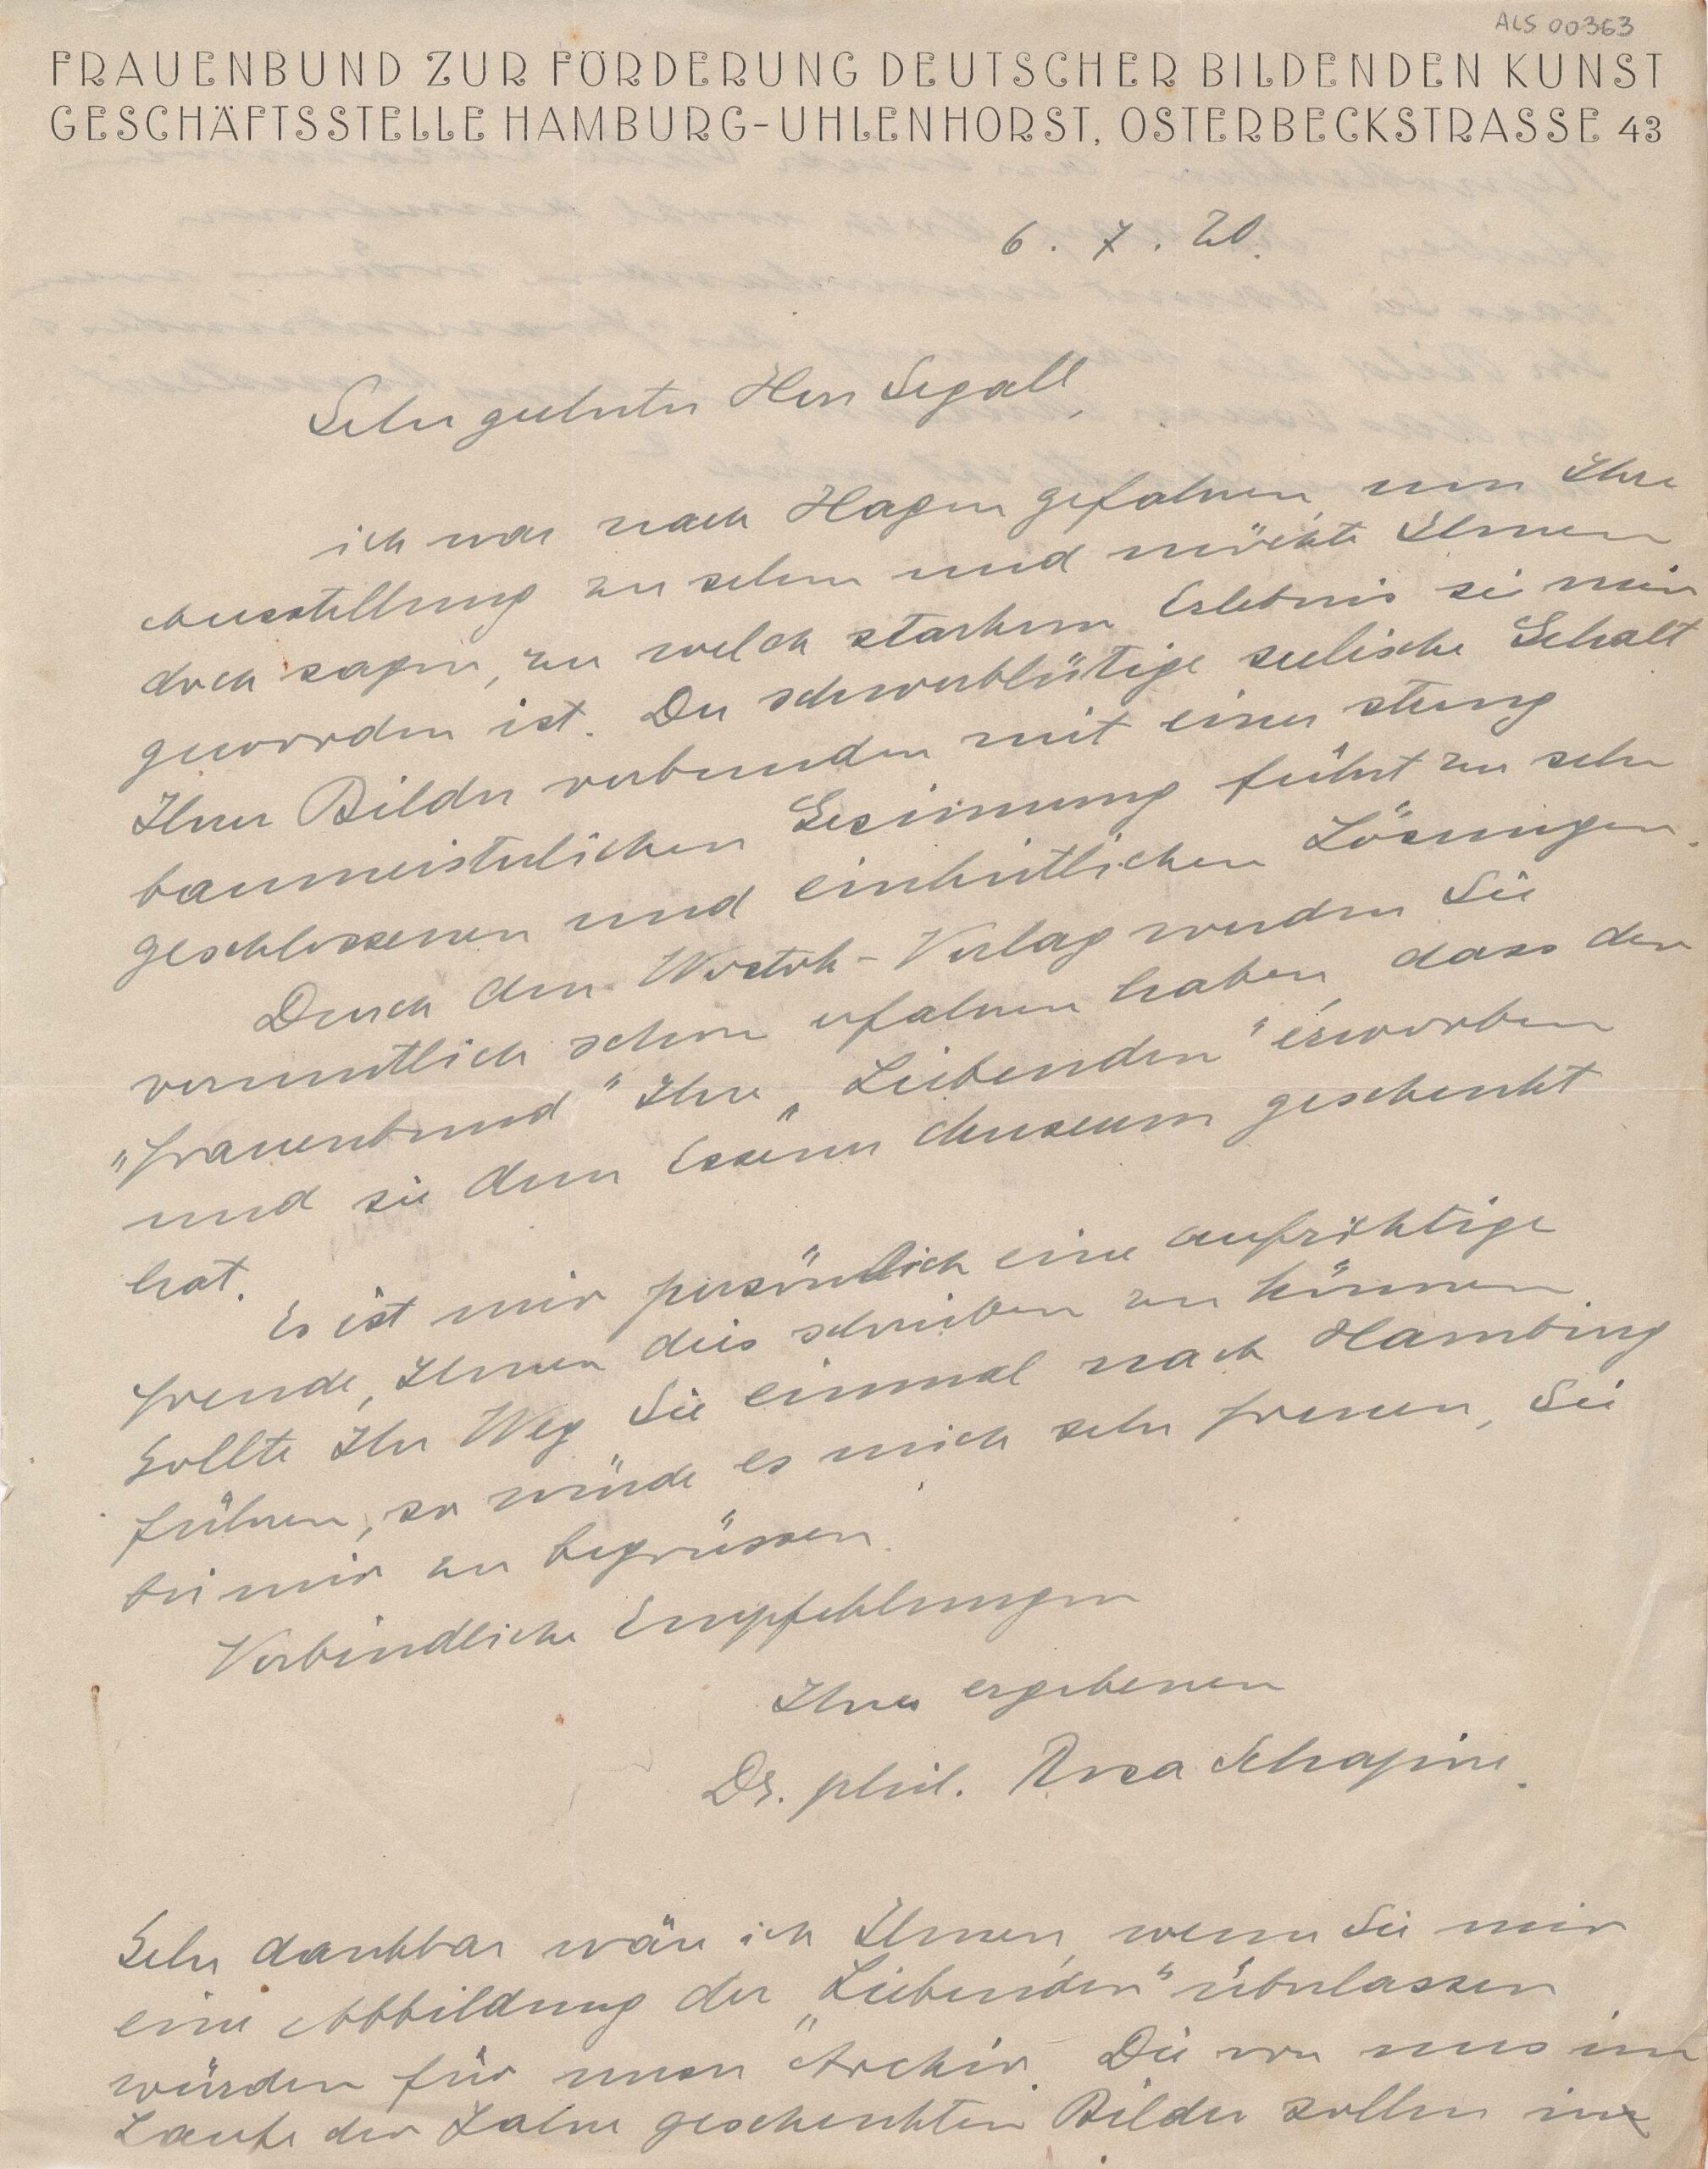 ALS 00363
FRAUENBUND ZUR FÖRDERUNG DEUTSCHER BILDENDEN KUNST
GESCHÄFTSSTELLE HAMBURG-UHLENHORST, OSTERBECKSTRASSE 43
6. 7. 20.
Sehr geehrter Herr Segall,
ich war nach Hagen gefahren, um Ihre
Ausstellung zu sehen und möchte Ihnen
doch sagen, zu welch starkem Erlebnis sie mir
geworden ist. Der schwerblütige seelische Gehalt
Ihrer Bilder verbunden mit einer streng
baumeisterlichen Gesinnung führt zu sehr
geschlossenen und einheitlichen Lösungen.
Durch den Wostok-Verlag werden Sie
vermutlich schon erfahren haben, dass der
„Frauenbund" Ihre „Liebenden" erworben
und sie dem Essener Museum geschenkt
hat.
Es ist mir persönlich eine aufrichtige
Freude, Ihnen dies schreiben zu können.
Sollte Ihr Weg Sie einmal nach Hamburg
führen, so würde es mich sehr freuen, Sie
bei mir zu begrüssen.
Verbindliche Empfehlungen
Ihrer ergebenen
Dr. phil. Rosa Schapire.
Sehr dankbar wäre ich Ihnen, wenn Sie mir
eine Abbildung der „Liebenden" überlassen
würden für unser Archiv. Die von uns im
Laufe der Jahre geschenkten Bilder sollen in